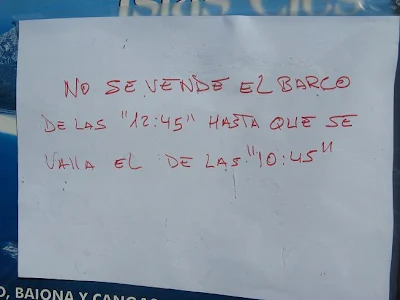 Islas Cíes
NO SE VENDE EL BARCO
DE LAS "12:45" HASTA QUE SE
VALLA EL DE LAS "10:45"
O, BAIONA Y CANGAS